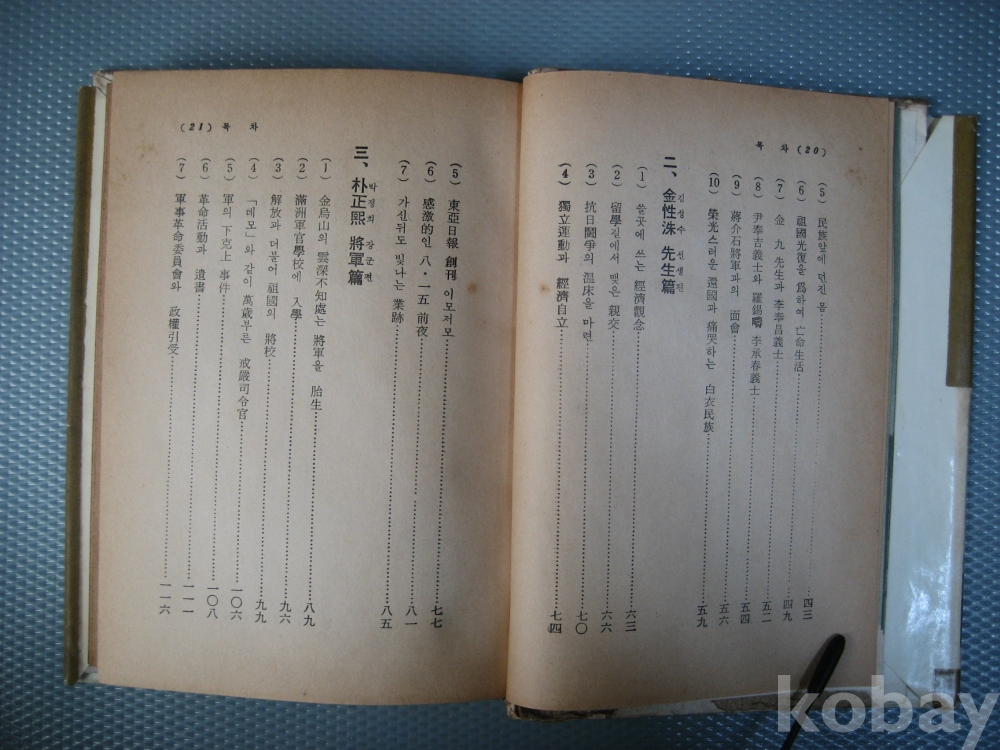 목 차 (20)
(5) 民族앞에 던진 몸……四三
(6) 祖國光復을 爲하여 亡命生活……四九
(7) 金 九先生과 李奉昌義士……五二
(8) 尹奉吉義士와 羅錫疇 李承春義士……五四
(9) 蔣介石將軍과의 面會……五六
(10) 榮光스러운 還國과 痛哭하는 白衣民族……五九
二、金性洙 先生篇
김성수 선생편
(1) 쓸곳에 쓰는 經濟觀念……六三
(2) 留學길에서 맺은 親交……六六
(3) 抗日鬪爭의 溫床을 마련……七〇
(4) 獨立運動과 經濟自立……七四
(5) 東亞日報 創刊 이모저모……七七
(6) 感激的인 八・一五 前夜……八一
(7) 가신뒤도 빛나는 業跡……八五
三、朴正熙 將軍篇
박정희 장군편
(1) 金烏山의 雲深不知處는 將軍을 胎生……八九
(2) 滿洲軍官學校에 入學……九六
(3) 解放과 더불어 祖國의 將校……九九
(4) 「데모」와 같이 萬歲부른 戒嚴司令官……一〇六
(5) 軍의 下克上 事件……一〇八
(6) 革命活動과 遺書……一一一
(7) 軍事革命委員會와 政權引受……一一六
(21) 목 차
kobay